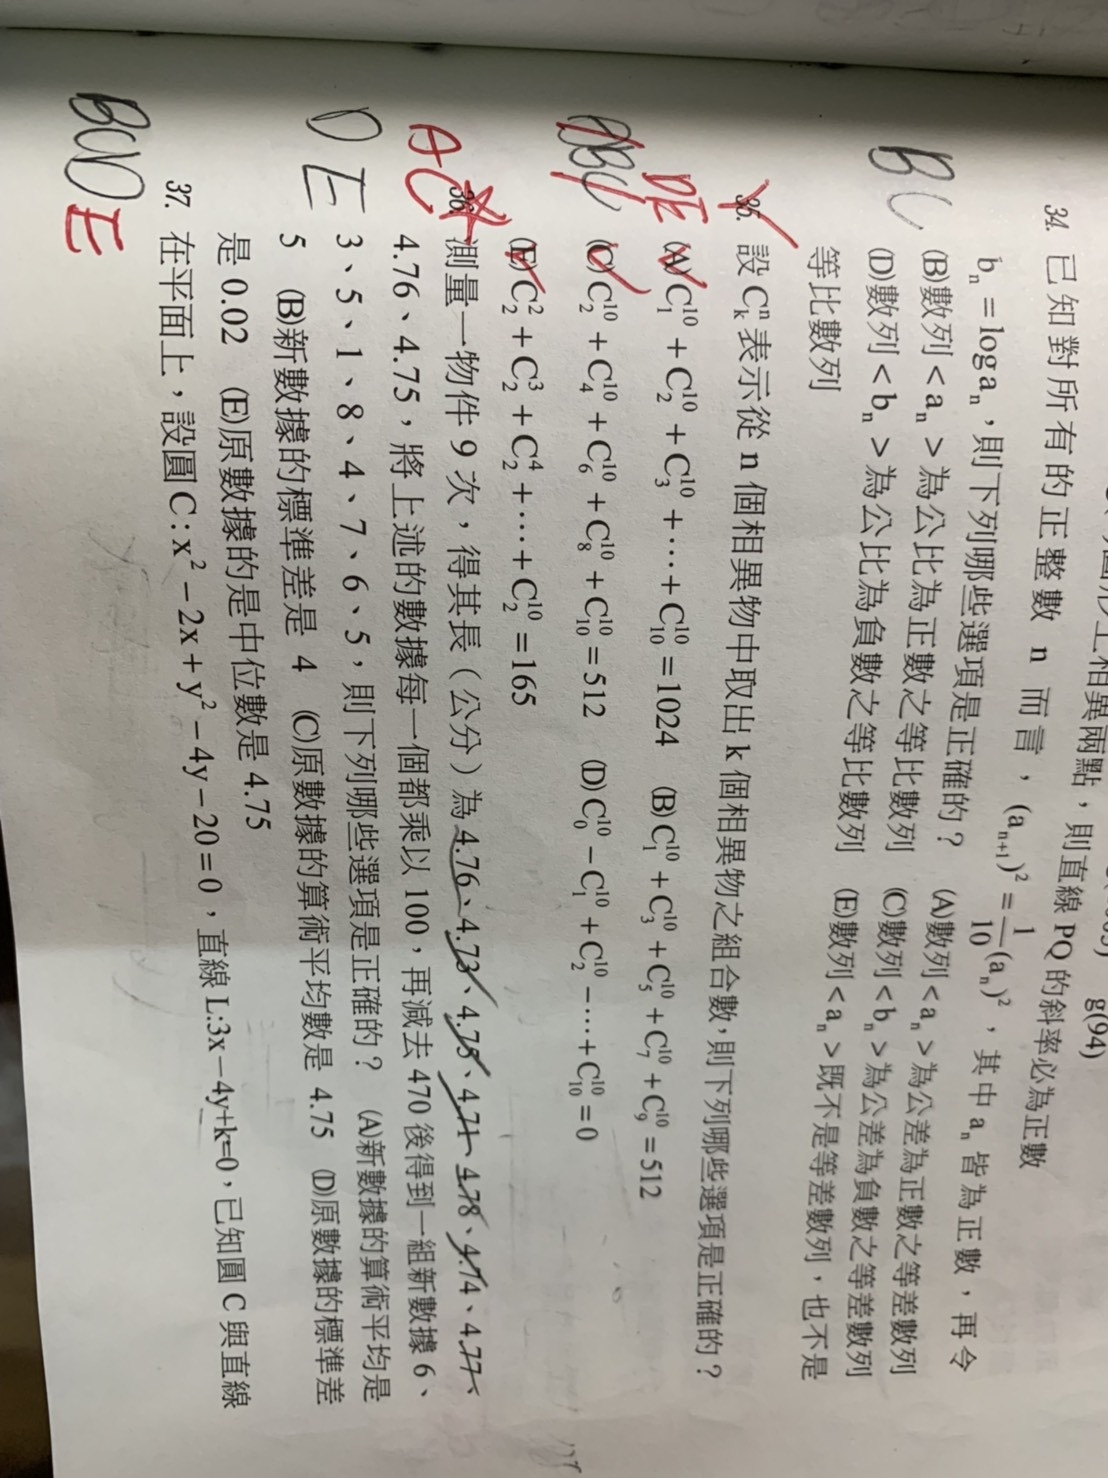 g(94)
相異兩點，則直線 PQ 的斜率必為正數
34. 已知對所有的正整數 n 而言，(aₙ₊₁)² = 1/10 (aₙ)²，其中 aₙ 皆為正數，再令
bₙ = log aₙ，則下列哪些選項是正確的？ (A)數列＜aₙ＞為公差為正數之等差數列
(B)數列＜aₙ＞為公比為正數之等比數列 (C)數列＜bₙ＞為公差為負數之等差數列
(D)數列＜bₙ＞為公比為負數之等比數列 (E)數列＜aₙ＞既不是等差數列，也不是
等比數列
BC
35. 設 Cⁿₖ 表示從 n 個相異物中取出 k 個相異物之組合數，則下列哪些選項是正確的？
(A) C¹⁰₁ + C¹⁰₂ + C¹⁰₃ + … + C¹⁰₁₀ = 1024 (B) C¹⁰₁ + C¹⁰₃ + C¹⁰₅ + C¹⁰₇ + C¹⁰₉ = 512
(C) C¹⁰₂ + C¹⁰₄ + C¹⁰₆ + C¹⁰₈ + C¹⁰₁₀ = 512 (D) C¹⁰₀ − C¹⁰₁ + C¹⁰₂ − … + C¹⁰₁₀ = 0
(E) C²₂ + C³₂ + C⁴₂ + … + C¹⁰₂ = 165
DE
36. 測量一物件 9 次，得其長（公分）為 4.76、4.73、4.75、4.71、4.78、4.74、4.77、
4.76、4.75，將上述的數據每一個都乘以 100，再減去 470 後得到一組新數據 6、
3、5、1、8、4、7、6、5，則下列哪些選項是正確的？ (A)新數據的算術平均是
5 (B)新數據的標準差是 4 (C)原數據的算術平均數是 4.75 (D)原數據的標準差
是 0.02 (E)原數據的是中位數是 4.75
AC
DE
37. 在平面上，設圓 C : x² − 2x + y² − 4y − 20 = 0，直線 L:3x−4y+k=0，已知圓 C 與直線
BCD E